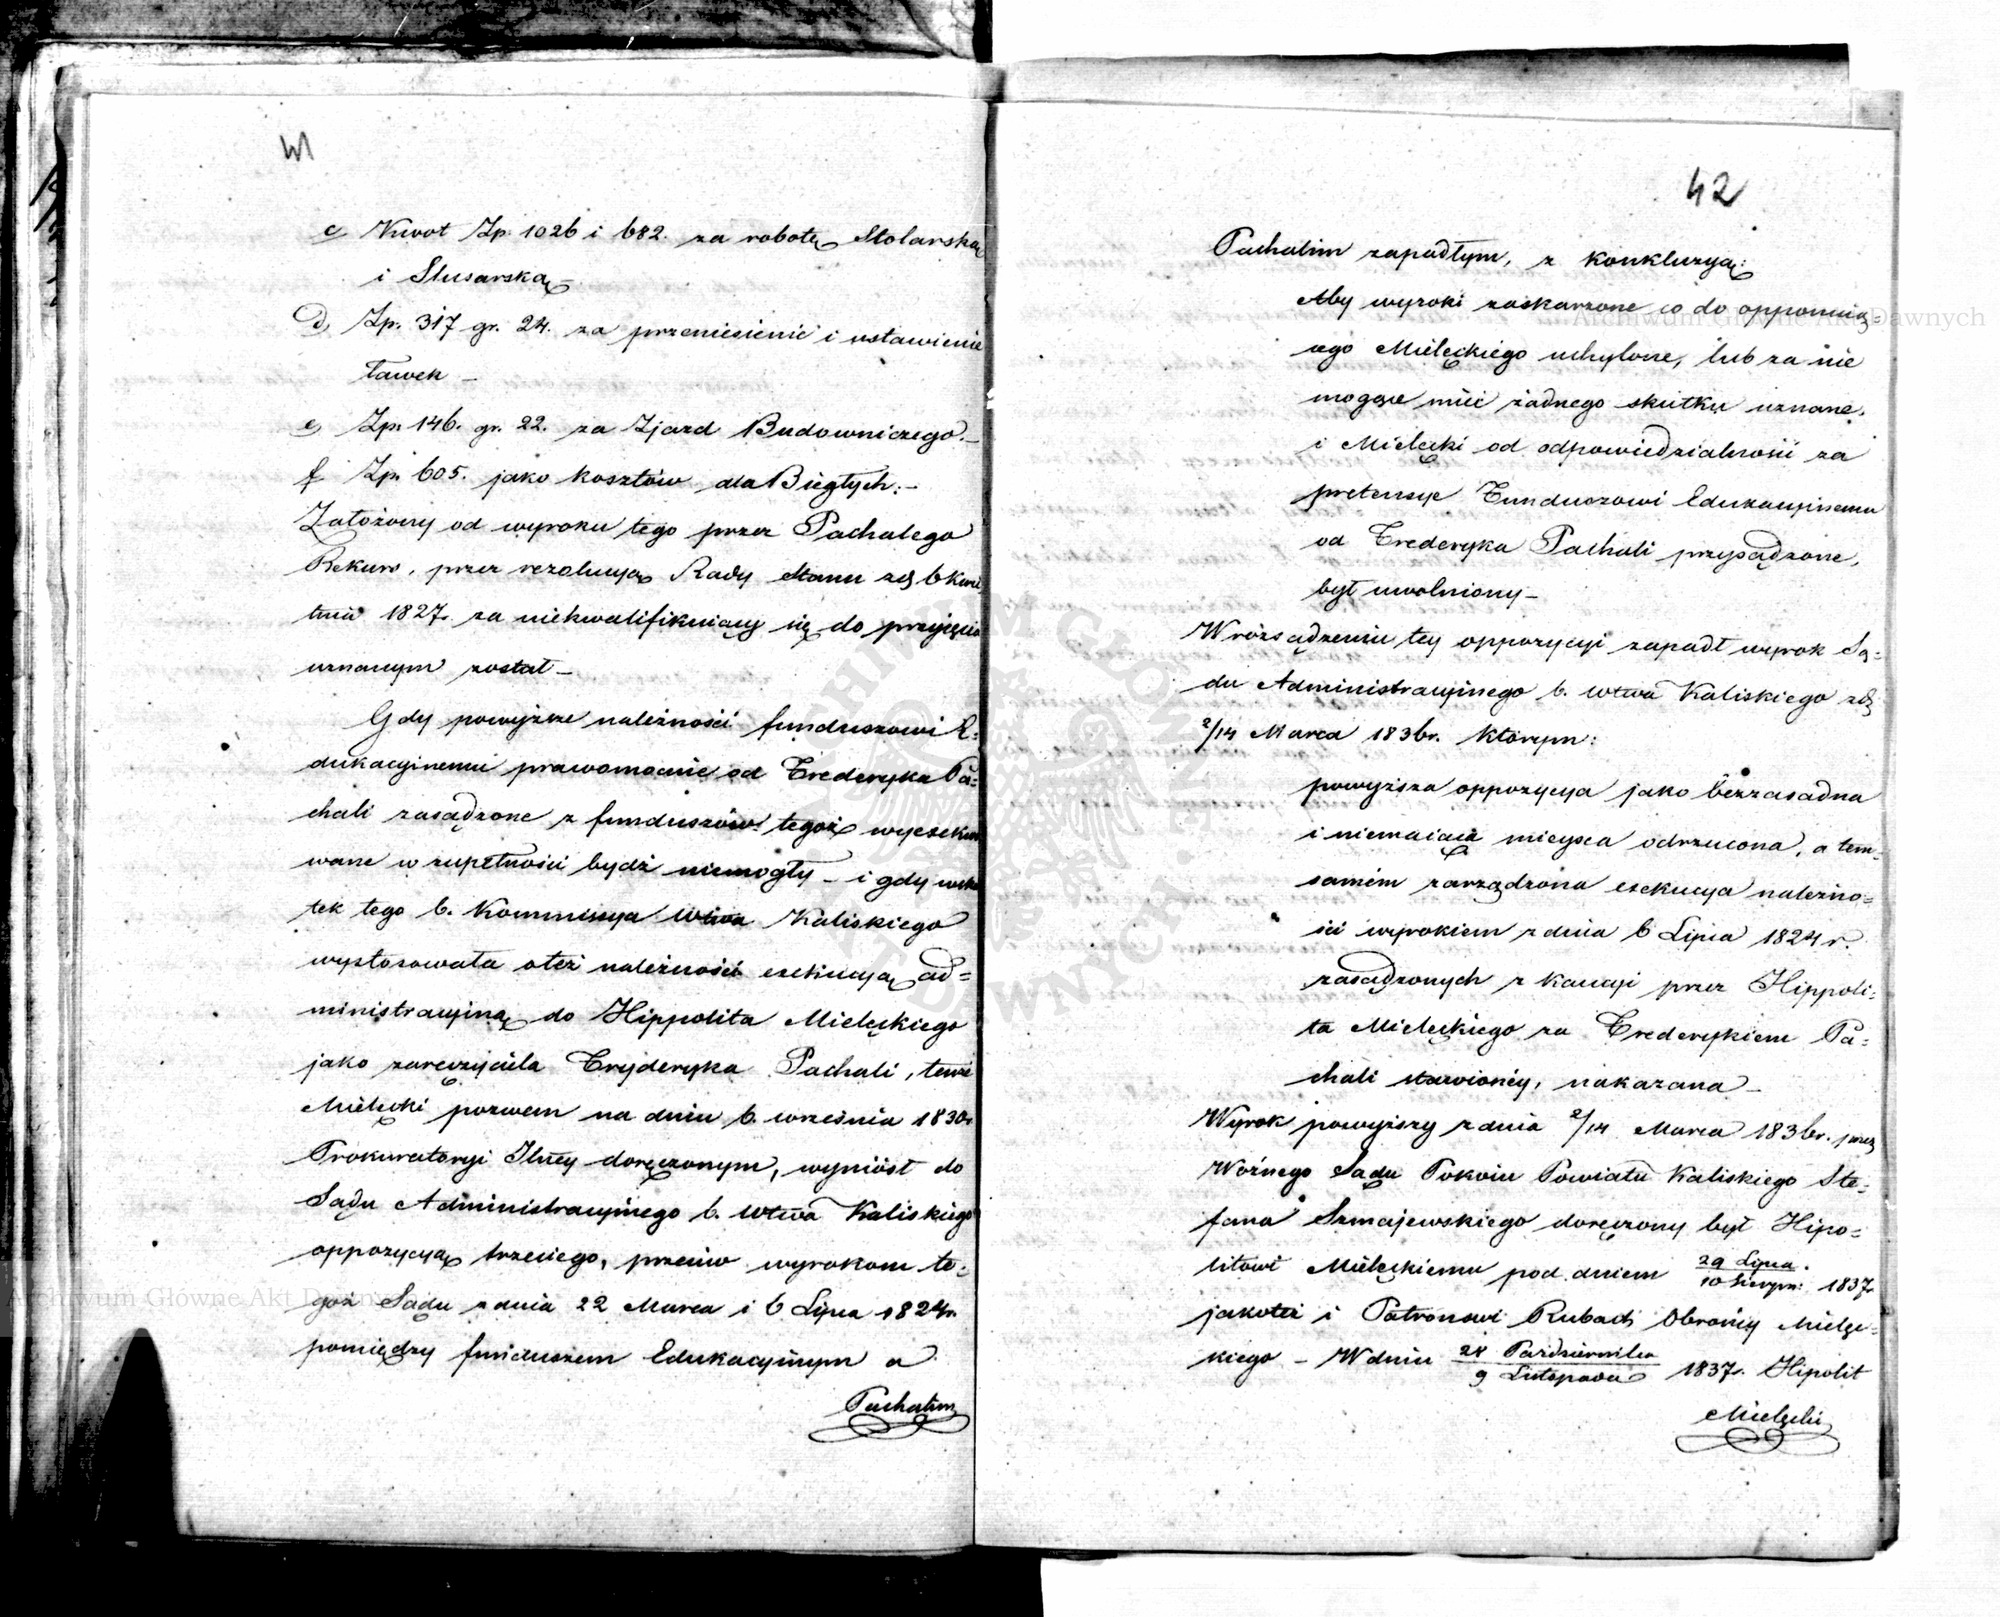 41
c, Kwot Zp. 1026 i 682. za robotę Stolarską
i Slusarską
d, Zp. 317 gr. 24. za przeniesienie i ustawienie
ławek –
e, Zp. 146. gr. 22. za Zjazd Budowniczego. –
f Zp. 605. jako kosztów dla Biegłych. –
Założony od wyroku tego przez Pachalego
Rekurs, przez rezolucyą Rady Stanu zd 6 Kwie
tnia 1827. za niekwalifikuiący się do przyjęcia
uznanym został –
Gdy powyższe należności funduszowi E=
dukacyinemu prawomocnie od Frederyka Pa=
chali zasądzone z funduszów tegoż wyeseku
wane w zupełności bydź niemogły – i gdy wsku
tek tego b. Kommissya Wtwa Kaliskiego
wystosowała oteż należności exekucyą ad=
ministracyiną do Hippolita Mielęckiego
jako zaręczyciela Fryderyka Pachali, tenże
Mielęcki pozwem na dniu 6 września 1830r
Prokuratoryi Jlney doręczonym, wyniósł do
Sądu Administracyinego b. Wtwa Kaliskiego
oppozycyą trzeciego, przeciw wyrokom te=
goż Sądu z dnia 22 Marca i 6 Lipca 1824r.
pomiędzy funduszem Edukacyinym a
Pachalim
42
Pachalim zapadłym, z konkluzyą:
Aby wyroki zaskarzone co do opponuią=
cego Mielęckiego uchylone, lub za nie
mogące mieć żadnego skutku uznane,
i Mielęcki od odpowiedzialności za
pretensye Funduszowi Edukacyinemu
od Frederyka Pachali przysądzone,
był uwolniony –
W rozsądzeniu tey oppozycyi zapadł wyrok Są=
du Administracyinego b. Wtwa Kaliskiego zd
2/14 Marca 1836r. którym:
powyższa oppozycya jako bezzasadna
i niemaiąca mieysca odrzucona, a tem=
samem zarządzona exekucya należno=
ści wyrokiem z dnia 6 Lipca 1824 r.
zasądzonych z kaucyi przez Hippoli=
ta Mielęckiego za Frederykiem Pa=
chali stawioney, nakazana –
Wyrok powyższy z dnia 2/14 Marca 1836r. przez
Woźnego Sądu Pokoiu Powiatu Kaliskiego Ste=
fana Szmajewskiego doręczony był Hipo=
litowi Mielęckiemu pod dniem 29 Lipca/10 Sierpn: 1837r
jakoteż i Patronowi Rubach Obrońcy Mielęc=
kiego – W dniu 28 Października/9 Listopada 1837r. Hipolit
Mielęcki
Archiwum Główne Akt Dawnych
Archiwum Główne Akt Dawnych
ARCHIWUM GŁÓWNE AKT DAWNYCH